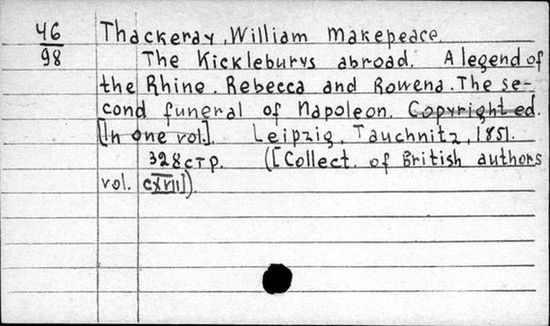 46 Thackeray, William Makepeace.
98 The Kickleburys abroad. A legend of
the Rhine. Rebecca and Rowena. The se-
cond funeral of Napoleon. Copyright ed.
[In one vol.]. Leipzig, Tauchnitz, 1851.
328 стр. ([Collect. of British authors
vol. CXVII]).